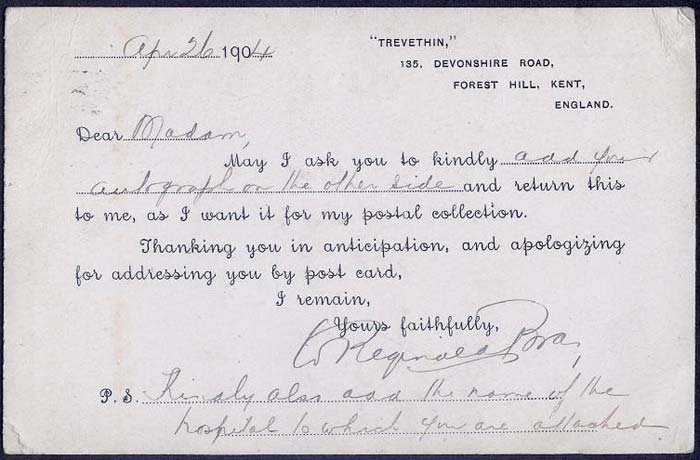 Apr 26 1904
"TREVETHIN,"
135, DEVONSHIRE ROAD,
FOREST HILL, KENT,
ENGLAND.
Dear Madam,
May I ask you to kindly add your
autograph on the other side and return this
to me, as I want it for my postal collection.
Thanking you in anticipation, and apologizing
for addressing you by post card,
I remain,
Yours faithfully,
W Reginald Bray,
P.S. Kindly also add the name of the
hospital to which you are attached